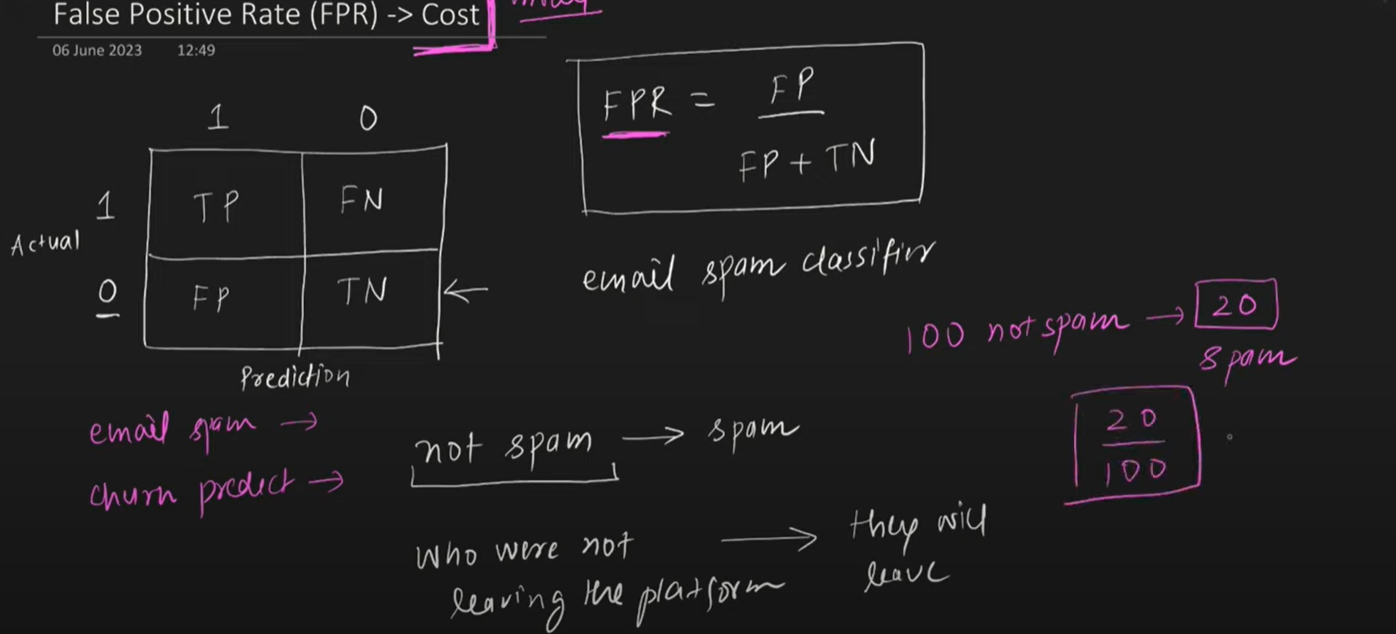 False Positive Rate (FPR) -> Cost
06 June 2023 12:49
1 0
1 TP FN
Actual
0 FP TN ←
Prediction
FPR = FP
FP + TN
email spam classifier
100 not spam → 20
spam
20
100
email spam →
churn predict →
not spam → spam
who were not
leaving the platform
→ they will
leave